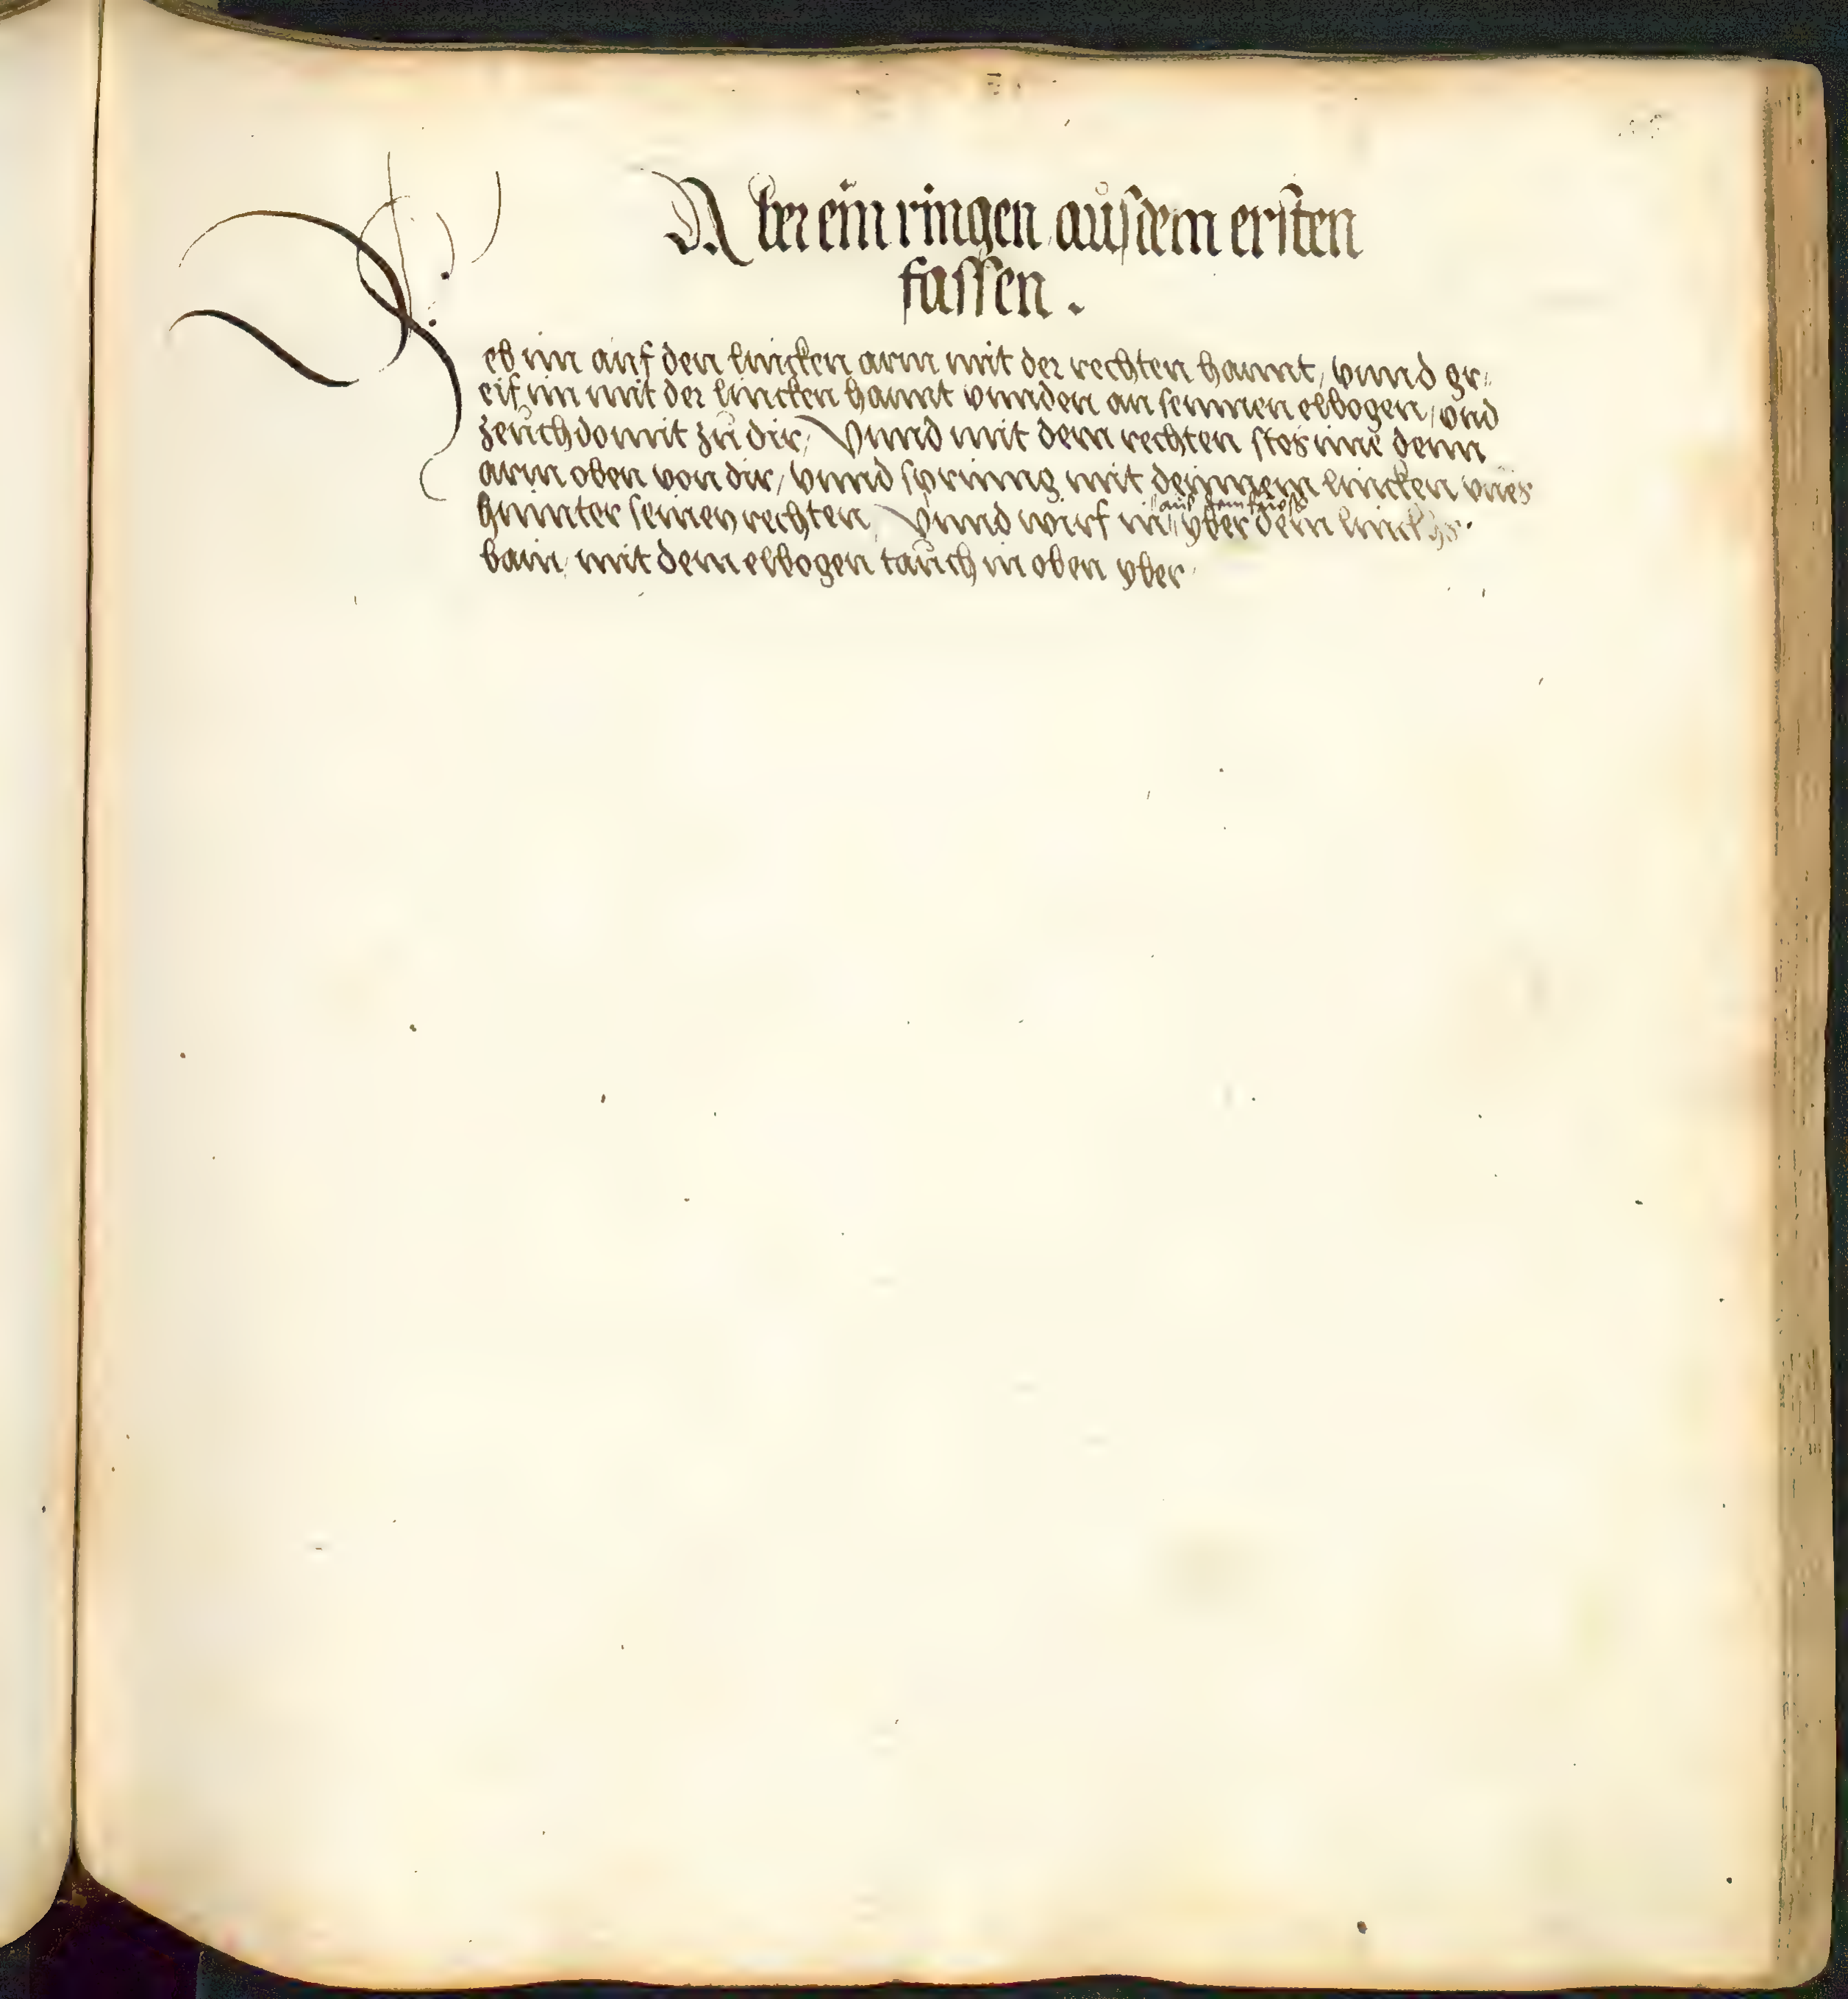 Aber ein ringen aus dem ersten
fassen.
eb im auf den lincken arm mit der rechten hannt, vnnd gr
eif im mit der lincken hannt vnnden an seinnen elbogen, vnd
zeuch domit zu dir, Vnnd mit dem rechten stos ime denn
arm oben von dir, vnnd sprinng mit deinnem lincken vues
hinnter seinen rechten, Vnnd wirf in yber dein linckhs
aus dem fueß
bain, mit dem elbogen tauch in oben yber